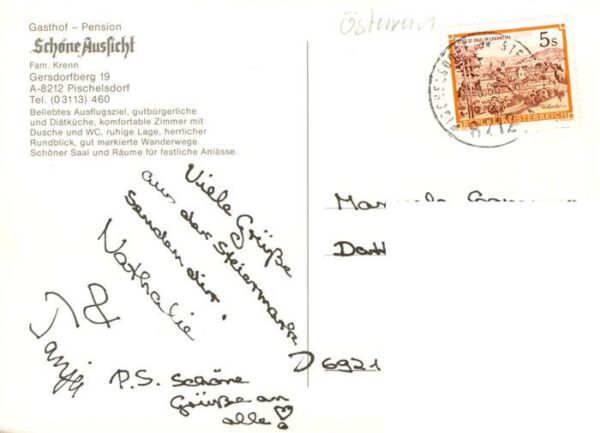 Gasthof – Pension
Schöne Aussicht
Fam. Krenn
Gersdorfberg 19
A-8212 Pischelsdorf
Tel. (03113) 460
Beliebtes Ausflugsziel, gutbürgerliche
und Diätküche, komfortable Zimmer mit
Dusche und WC, ruhige Lage, herrlicher
Rundblick, gut markierte Wanderwege.
Schöner Saal und Räume für festliche Anlässe.
Viele Grüße
aus der Steiermark
senden dir
Nathalie
&
Tanja
P.S. Schöne
Grüße an
alle!
5s
8212
D 6921